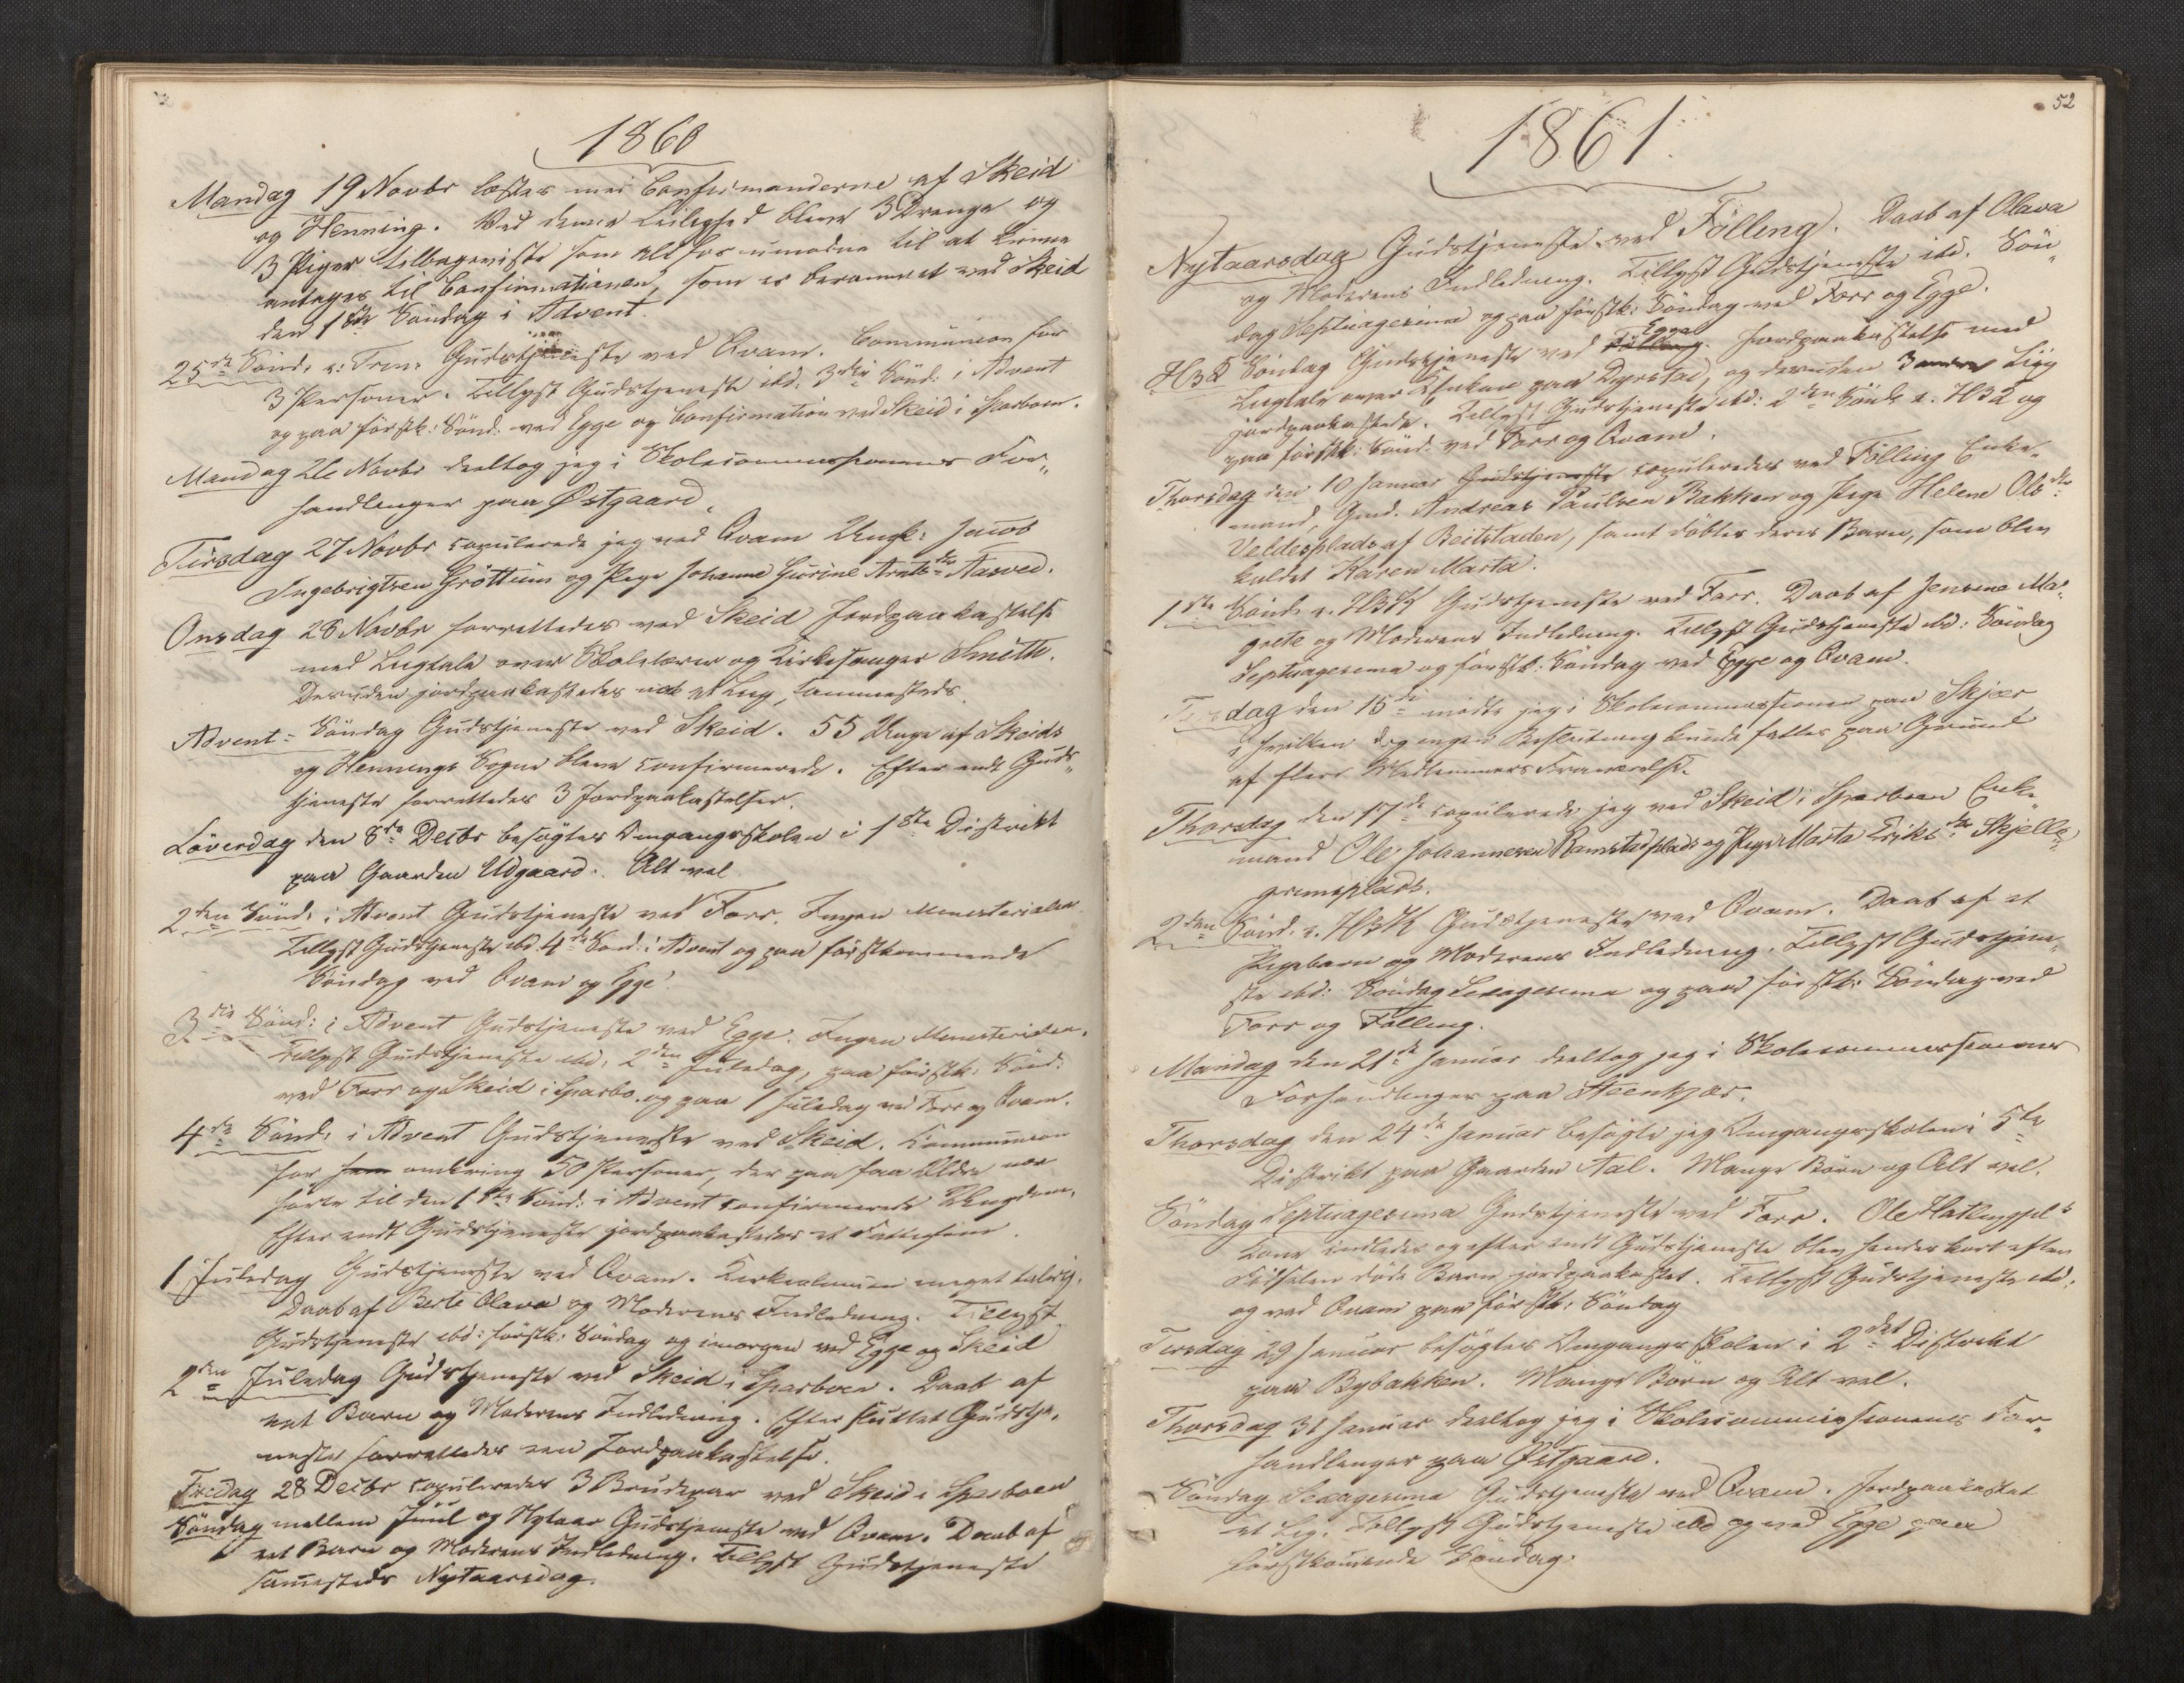 1860
Mandag 19 Novbr læstes med Confirmanderne af Skeid
og Henning. Ved denne Leilighed bleve 3 Drenge og
3 Piger tilbageviste som altfor umodne til at kunne
antages til Confirmationen, som er berammet ved Skeid
den 1ste Søndag i Advent.
25de Sønd. e. Trin. Gudstjeneste ved Qvam. Communion for
3 Personer. Tillyst Gudstjeneste ibd. 3die Sønd. i Advent
og paa førstk: Sønd. ved Egge og Confirmation ved Skeid i Sparboen.
Mandag 26 Novbr deeltog jeg i Skolecommissionens For„
handlinger paa Østgaard.
Tirsdag 27 Novbr copulerede jeg ved Qvam Ungk: Jacob
Ingebrigtsen Gröttüm og Pige Johanna Gurine Arntsdtr Aasved.
Onsdag 28 Novbr forrettedes ved Skeid Jordpaakastelse
med Liigtale over Skolelærer og Kirkesanger Smith.
Desuden jordpaakastedes et Liig sammesteds.
Advent-Søndag Gudstjeneste ved Skeid. 55 Unge af Skeids
og Hennings Sogne bleve confirmerede. Efter endt Guds„
tjeneste forrettedes 3 Jordpaakastelser.
Løverdag den 8de Decbr besøgtes Omgangsskolen i 1ste Distrikt
paa Gaarden Udgaard. Alt vel
2den Sønd. i Advent Gudstjeneste ved Forr. Ingen Ministerialia.
Tillyst Gudstjeneste ibd. 4de Sønd. i Advent og paa førstkommende
Søndag ved Qvam og Egge.
3die Sønd: i Advent Gudstjeneste ved Egge. Ingen Ministerialia.
Tillyst Gudstjeneste ibd. 2den Juledag, paa førstk: Sønd:
ved Forr og Skeid i Sparbo. og paa 1 Juledag ved Forr og Qvam.
4de Sønd. i Advent Gudstjeneste ved Skeid. Communion
for omkring 50 Personer, der paa faa Ældre nær
hørte til den 1ste Sønd: i Advent confirmerede Ungdom.
Efter endt Gudstjeneste jordpaakastedes et
1 Juledag Gudstjeneste ved Qvam. Kirkealmuen meget talrig.
Daab af Berte Olava og Moderens Indledning. Tillyst
Gudstjeneste ibd: førstk: Søndag og imorgen ved Egge og Skeid
2den Juledag Gudstjeneste ved Skeid i Sparboen. Daab af
eet Barn og Moderens Indledning. Efter sluttet Gudstje„
neste forrettedes een Jordpaakastelse.
Fredag 28 Decbr copuleredes 3 Brudepar ved Skeid i Sparboen
Søndag mellem Juul og Nytaar Gudstjeneste ved Qvam. Daab af
eet Barn og Moderens Indledning. Tillyst Gudstjeneste
sammesteds Nytaarsdag.
52
1861.
Nytaarsdag Gudstjeneste ved Fölling. Daab af Olava
og Moderens Indledning. Tillyst Gudstjeneste ibd. Søn„
dag Septuagesima og paa førstk: Søndag ved Forr og Egge.
H3K Søndag Gudstjeneste ved Fölling Egge. Jordpaakastelse med
Liigtale over Enkone paa Dyrstad, og desuden 3 andre Liig
jordpaakastede. Tillyst Gudstjeneste ibd: 2den Sønd. e. H3K og
paa førstk: Sønd. ved Forr og Qvam.
Thorsdag den 10 Januar Gudstjeneste copuleredes ved Fölling Enke„
mand, Gmd. Andreas Paulsen Bakken og Pige Helene Olsdtr
Veldesplads af Beitstaden, samt døbtes deres Barn, som blev
kaldet Karen Marta.
1ste Sønd. e. H3K Gudstjeneste ved Forr. Daab af Jensine Ma„
grete og Moderens Indledning. Tillyst Gudstjeneste ibd: Søndag
Septuagesima og førstk: Søndag ved Egge og Qvam.
Tirsdag den 15de mødte jeg i Skolecommissionen paa Skjær
i hvilken dog ingen Beslutning kunde fattes paa Grund
af flere Medlemmers Fraværelse.
Thorsdag den 17de copulerede jeg ved Skeid i Sparboen Enke„
mand Ole Johannesen Ramstadplads og Pige Marta Eriksdtr Skjelle„
gremsplads.
2den Sønd. e. H3K Gudstjeneste ved Qvam. Daab af et
Pigebarn og Moderens Indledning. Tillyst Gudstjene„
ste ibd: Søndag Sexagesima og paa førstk: Søndag ved
Forr og Fölling.
Mandag den 21de Januar deeltog jeg i Skolecommissionens
Forhandlinger paa Steenkjær.
Thorsdag den 24de Januar besøgte jeg Omgangsskolen i 5te
Distrikt paa Gaarden Aal. Mange Børn og Alt vel.
Søndag Septuagesima Gudstjeneste ved Forr. Ole Hatlingpls
Kone indledes og efter endt Gudstjeneste blev hendes kort efter
Fødselen døde Barn jordpaakastet. Tillyst Gudstjeneste ibd.
og ved Qvam paa førstk: Søndag
Tirsdag 29 Januar besøgtes Omgangsskolen i 2det Distrikt
paa Bybakken. Mange Børn og Alt vel.
Thorsdag 31 Januar deeltog jeg i Skolecommissionens For„
handlinger paa Østgaard.
Søndag Sexagesima Gudstjeneste ved Qvam. Jordpaakastet
et Lig. Tillyst Gudstjeneste ibd og ved Egge paa
førstkommende Søndag.